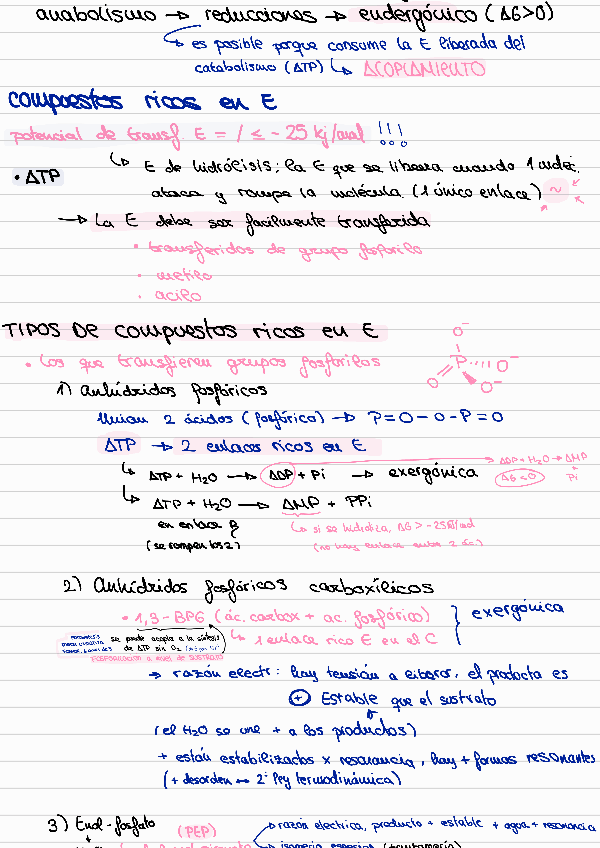 anabolismo → reducciones → endergónico (ΔG>0)
es posible porque consume la E liberada del
catabolismo (ATP) ↳ ACOPLAMIENTO
compuestos ricos en E
potencial de transf. E = / ≤ -25 kj/mol !!!
• ATP
↳ E de hidrólisis; la E que se libera cuando 1 molec.
ataca y rompe la molécula. (1 único enlace) ~
→ La E debe ser facilmente transferida
• transferidos de grupo fosforilo
• metilo
• acilo
TIPOS DE compuestos ricos en E
• Los que transfieren grupos fosforilos
O⁻
P O⁻
O O⁻
1) anhídridos fosfóricos
Unión 2 ácidos (fosfórico) → P=O-O-P=O
ATP → 2 enlaces ricos en E
↳ ATP + H2O → ADP + Pi → exergónica
ADP + H2O → AMP
ΔG<0 Pi
↳ ATP + H2O → AMP + PPi
en enlace β
(se rompen los 2)
↳ si se hidroliza, ΔG > -25KJ/mol
(no hay enlace entre 2 ác.)
2) Anhídridos fosfóricos carboxílicos
• 1,3-BPG (ác. carbox + ac. fosfórico) } exergónica
↳ 1 enlace rico E en el C
se puede acopla a la síntesis
de ATP sin O2
FOSFORILACIÓN A NIVEL DE SUSTRATO
→ razón electr: hay tensión a liberar, el producto es
+ Estable que el sustrato
(el H2O se une + a los productos)
+ están estabilizados x resonancia, hay + formas resonantes
(+ desorden ↔ 2ª ley termodinámica)
3) Enol-fosfato
(PEP)
razón electrica, producto + estable + agua + resonancia